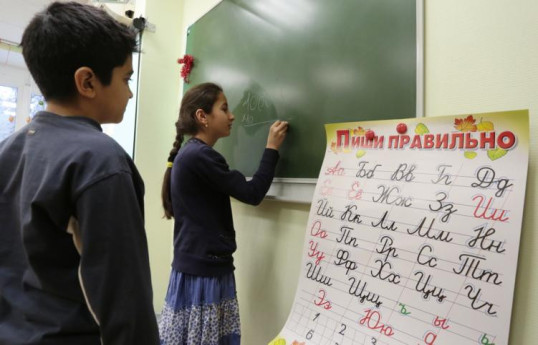 ПИШИ ПРАВИЛЬНО
Аа Бб Вв Гг Дд
Ее Ёё Жж Зз Ии
Йй Кк Лл Мм Нн
Оо Пп Рр Сс Тт
Уу Фф Хх Цц Чч
Шш Щщ ъ ы ь
Ээ Юю
1 2 3
6